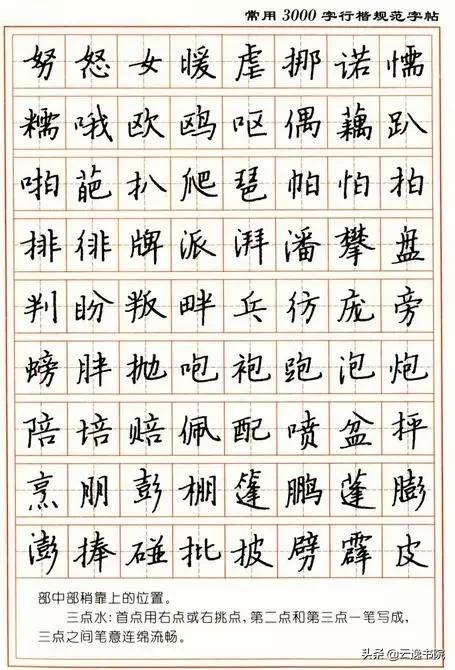 常用3000字行楷规范字帖
努怒女暖虐挪诺懦
糯哦欧鸥呕偶藕趴
啪葩扒爬琶帕怕拍
排徘牌派湃潘攀盘
判盼叛畔乓彷庞旁
螃胖抛咆袍跑泡炮
陪培赔佩配喷盆抨
烹朋彭棚篷鹏蓬膨
澎捧碰批披劈霹皮
部中部稍靠上的位置。
三点水:首点用右点或右挑点,第二点和第三点一笔写成,
三点之间笔意连绵流畅。
头条@云逸书院